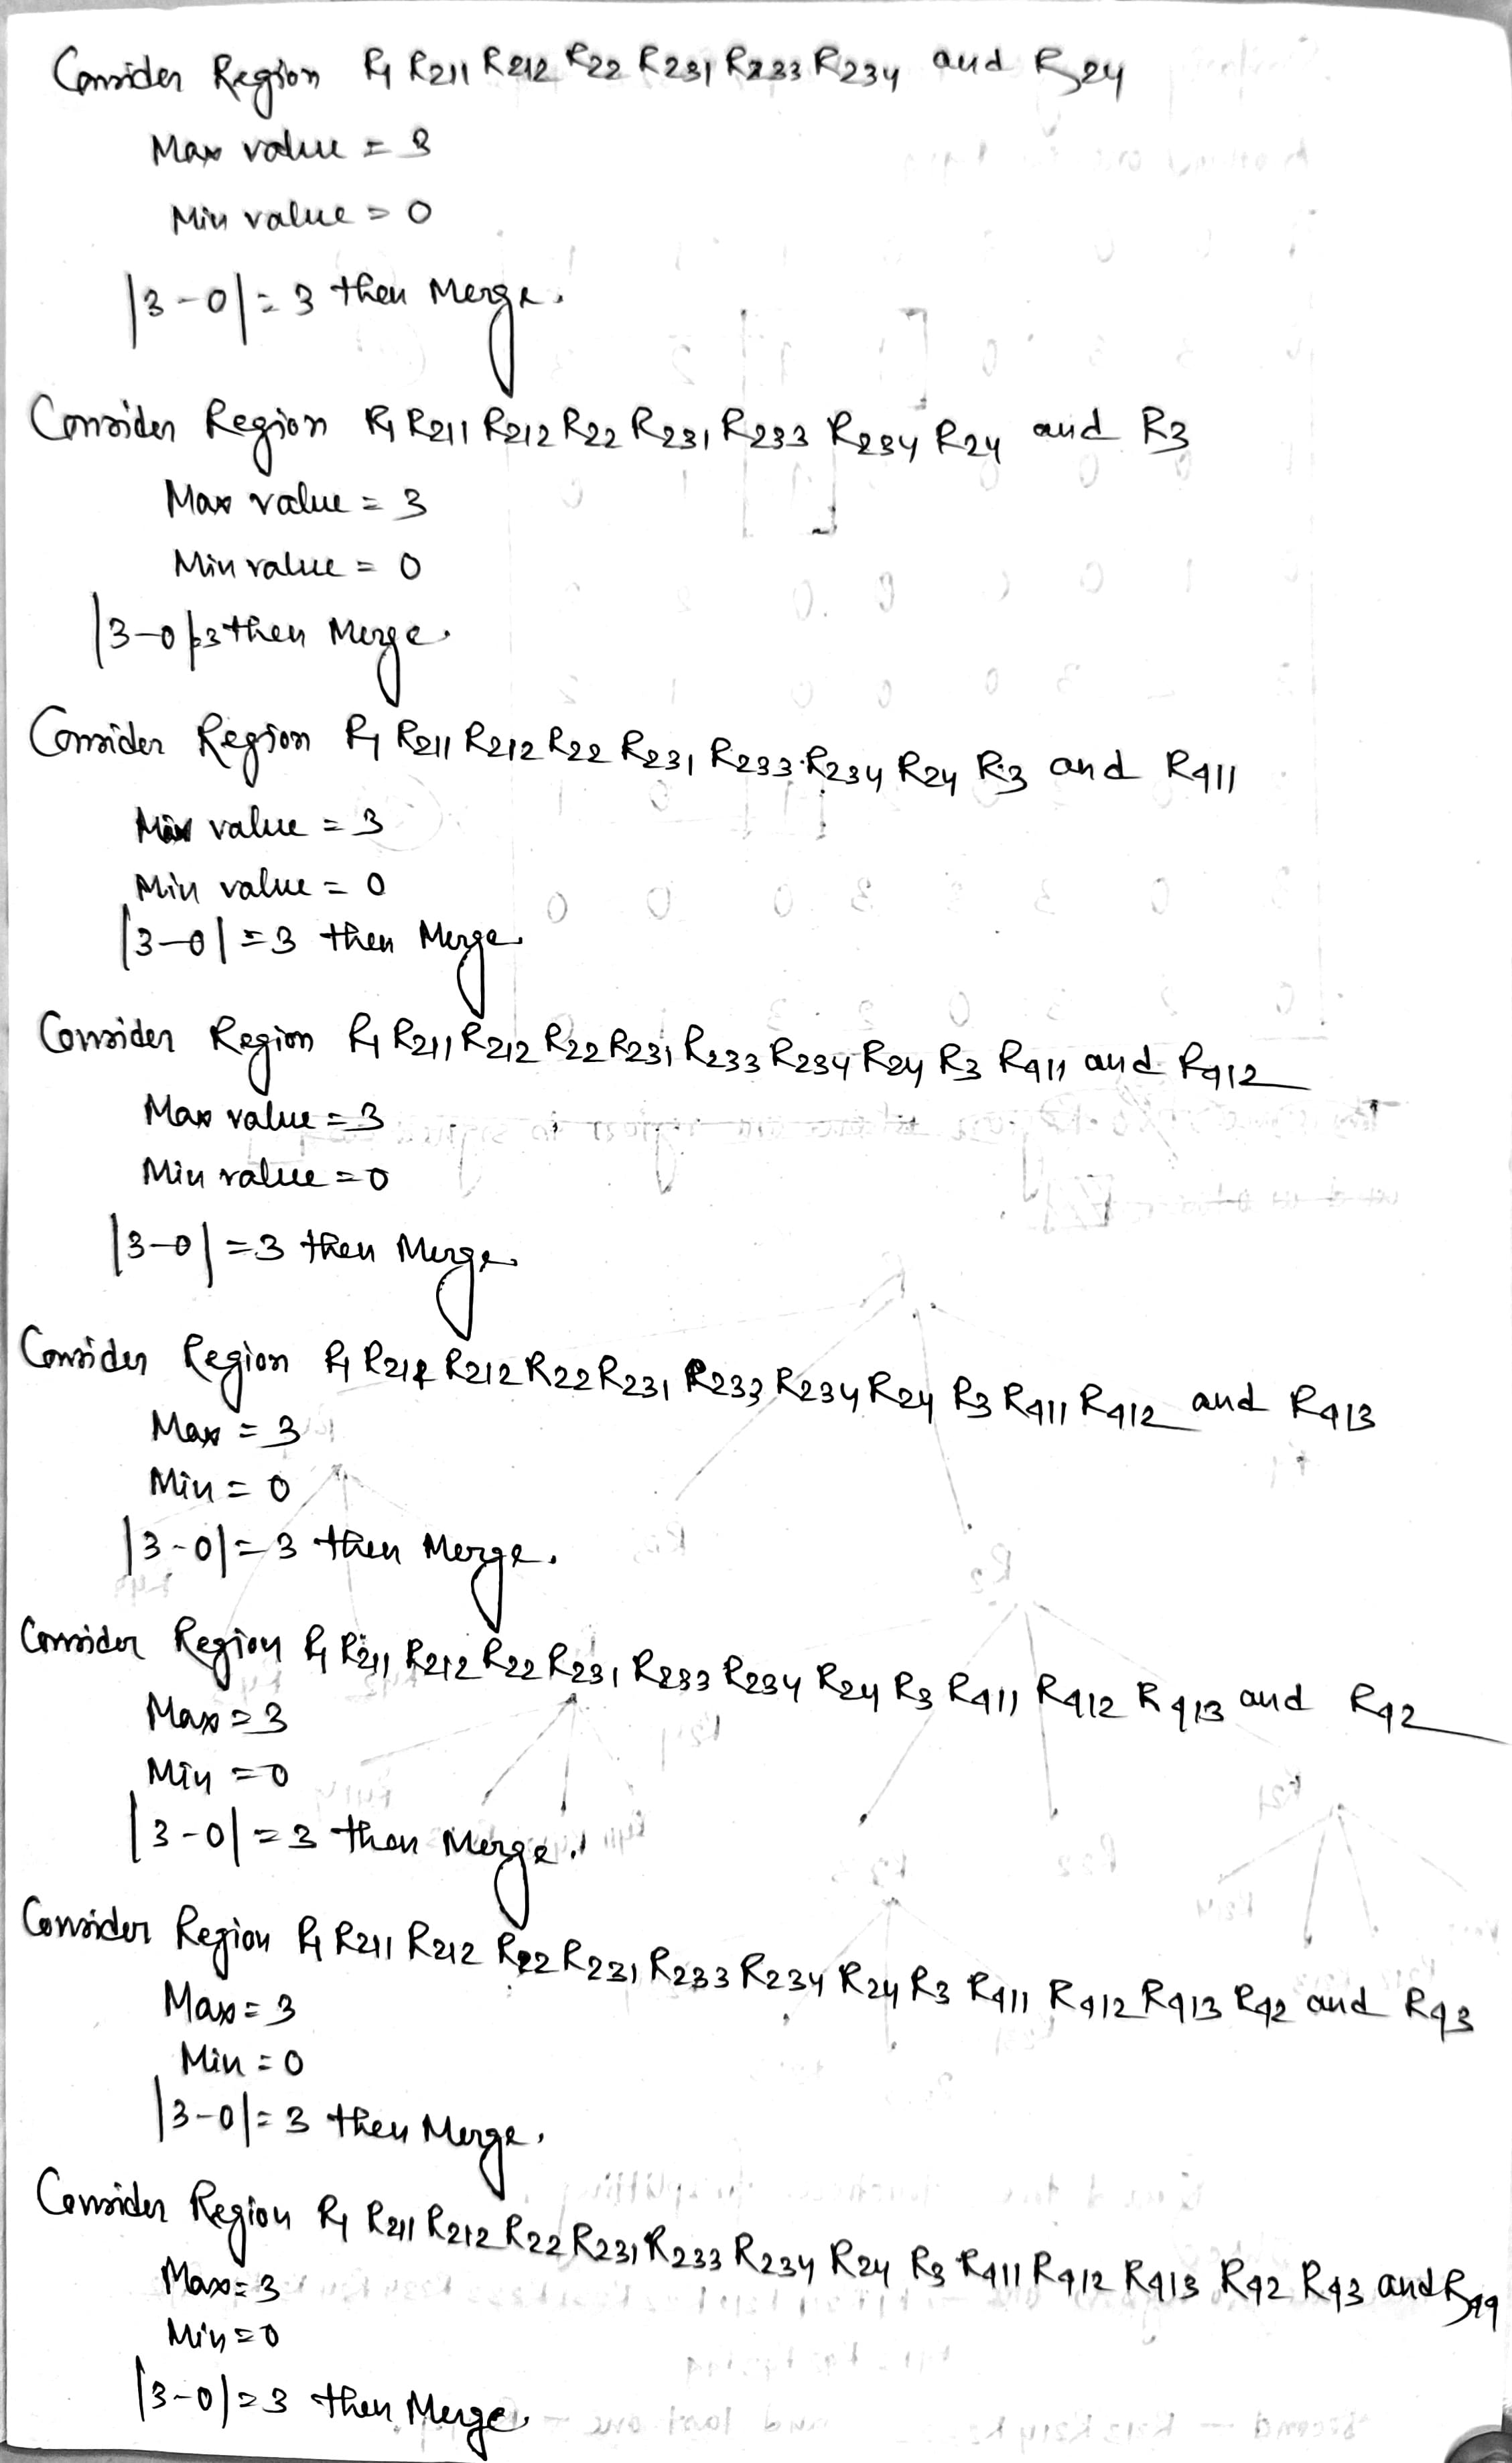 Consider Region R1 R211 R212 R22 R231 R233 R234 and R24
Max value = 3
Min value = 0
|3-0| = 3 then Merge.
Consider Region R1 R211 R212 R22 R231 R233 R234 R24 and R3
Max value = 3
Min value = 0
|3-0|=3 then Merge.
Consider Region R1 R211 R212 R22 R231 R233 R234 R24 R3 and R411
Max value = 3
Min value = 0
|3-0| = 3 then Merge.
Consider Region R1 R211 R212 R22 R231 R233 R234 R24 R3 R411 and R412
Max value = 3
Min value = 0
|3-0| = 3 then Merge.
Consider Region R1 R211 R212 R22 R231 R233 R234 R24 R3 R411 R412 and R413
Max = 3
Min = 0
|3-0| = 3 then Merge.
Consider Region R1 R211 R212 R22 R231 R233 R234 R24 R3 R411 R412 R413 and R42
Max = 3
Min = 0
|3-0| = 3 then Merge.
Consider Region R1 R211 R212 R22 R231 R233 R234 R24 R3 R411 R412 R413 R42 and R43
Max = 3
Min = 0
|3-0| = 3 then Merge.
Consider Region R1 R211 R212 R22 R231 R233 R234 R24 R3 R411 R412 R413 R42 R43 and R44
Max = 3
Min = 0
|3-0| = 3 then Merge.